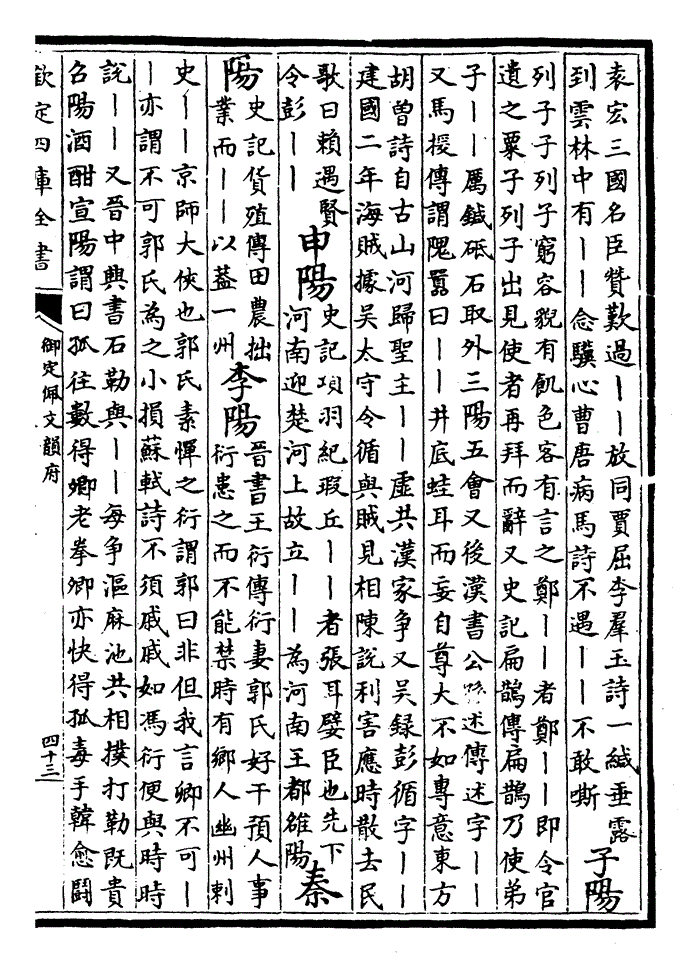 袁宏三國名臣贊歎過丨丨放同賈屈李羣玉詩一緘垂露
到雲林中有丨丨念驥心曹唐病馬詩不遇丨丨不敢嘶
子陽
列子子列子窮容貌有飢色客有言之鄭丨丨者鄭丨丨即令官
遺之粟子列子出見使者再拜而辭又史記扁鵲傳扁鵲乃使弟
子丨丨厲鍼砥石取外三陽五會又後漢書公孫述傳述字丨丨
又馬援傳謂隗囂曰丨丨井底蛙耳而妄自尊大不如專意東方
胡曾詩自古山河歸聖主丨丨虛共漢家爭又吳録彭循字丨丨
建國二年海賊據吳太守令循與賊見相陳說利害應時散去民
歌曰賴遇賢
令彭丨丨
申陽
史記項羽紀瑕丘丨丨者張耳嬖臣也先下
河南迎楚河上故立丨丨為河南王都雒陽
秦
陽
史記貨殖傳田農拙
業而丨丨以葢一州
李陽
晉書王衍傳衍妻郭氏好干預人事
衍患之而不能禁時有鄉人幽州刺
史丨丨京師大俠也郭氏素憚之衍謂郭曰非但我言卿不可丨
丨亦謂不可郭氏為之小損蘇軾詩不須戚戚如馮衍便與時時
說丨丨又晉中興書石勒與丨丨每爭漚麻池共相撲打勒既貴
召陽酒酣宣陽謂曰孤往數得卿老拳卿亦快得孤毒手韓愈鬬
欽定四庫全書
御定佩文韻府
四十三